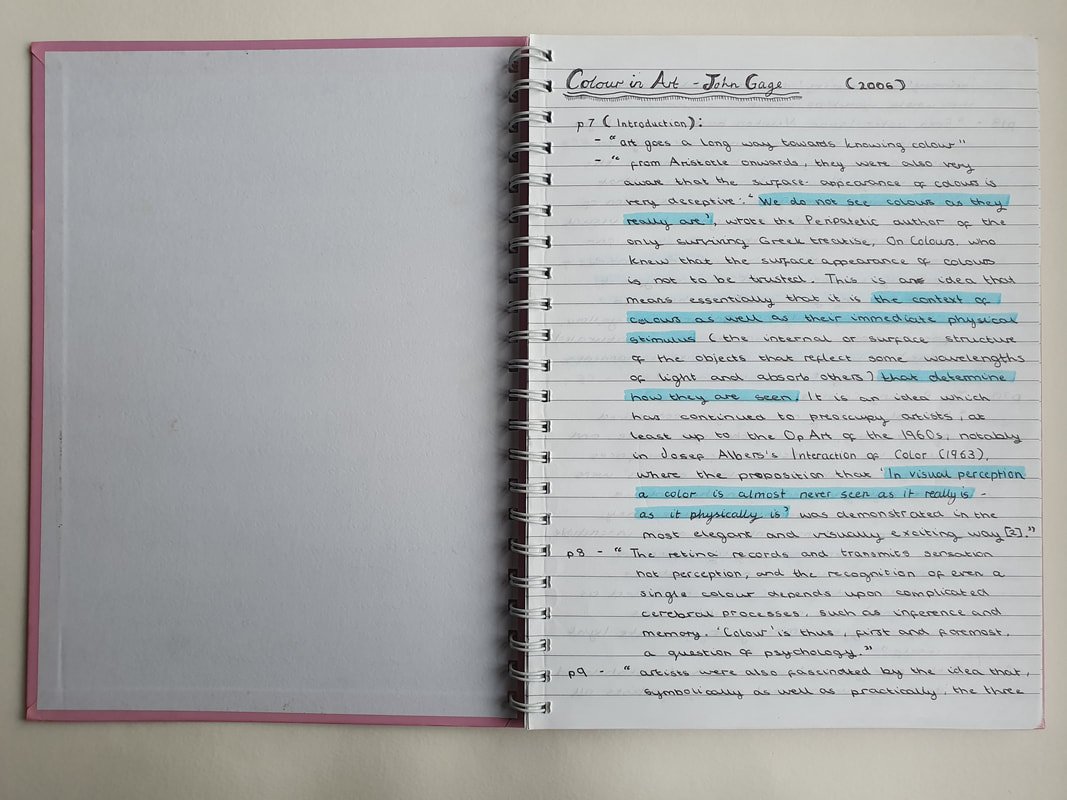 Colour in Art - John Gage (2006)
p7 (Introduction):
- "art goes a long way towards knowing colour"
- " from Aristotle onwards, they were also very
aware that the surface-appearance of colours is
very deceptive: 'We do not see colours as they
really are', wrote the Peripatetic author of the
only surviving Greek treatise, On Colours, who
knew that the surface appearance of colours
is not to be trusted. This is an idea that
means essentially that it is the context of
colours as well as their immediate physical
stimulus (the internal or surface structure
of the objects that reflect some wavelengths
of light and absorb others) that determine
how they are seen. It is an idea which
has continued to preoccupy artists, at
least up to the Op Art of the 1960s, notably
in Josef Albers's Interaction of Color (1963),
where the proposition that 'In visual perception
a color is almost never seen as it really is -
as it physically is' was demonstrated in the
most elegant and visually exciting way [2]."
p8 - " The retina records and transmits sensation
not perception, and the recognition of even a
single colour depends upon complicated
cerebral processes, such as inference and
memory. 'Colour' is thus, first and foremost,
a question of psychology."
p9 - " artists were also fascinated by the idea that,
symbolically as well as practically, the three